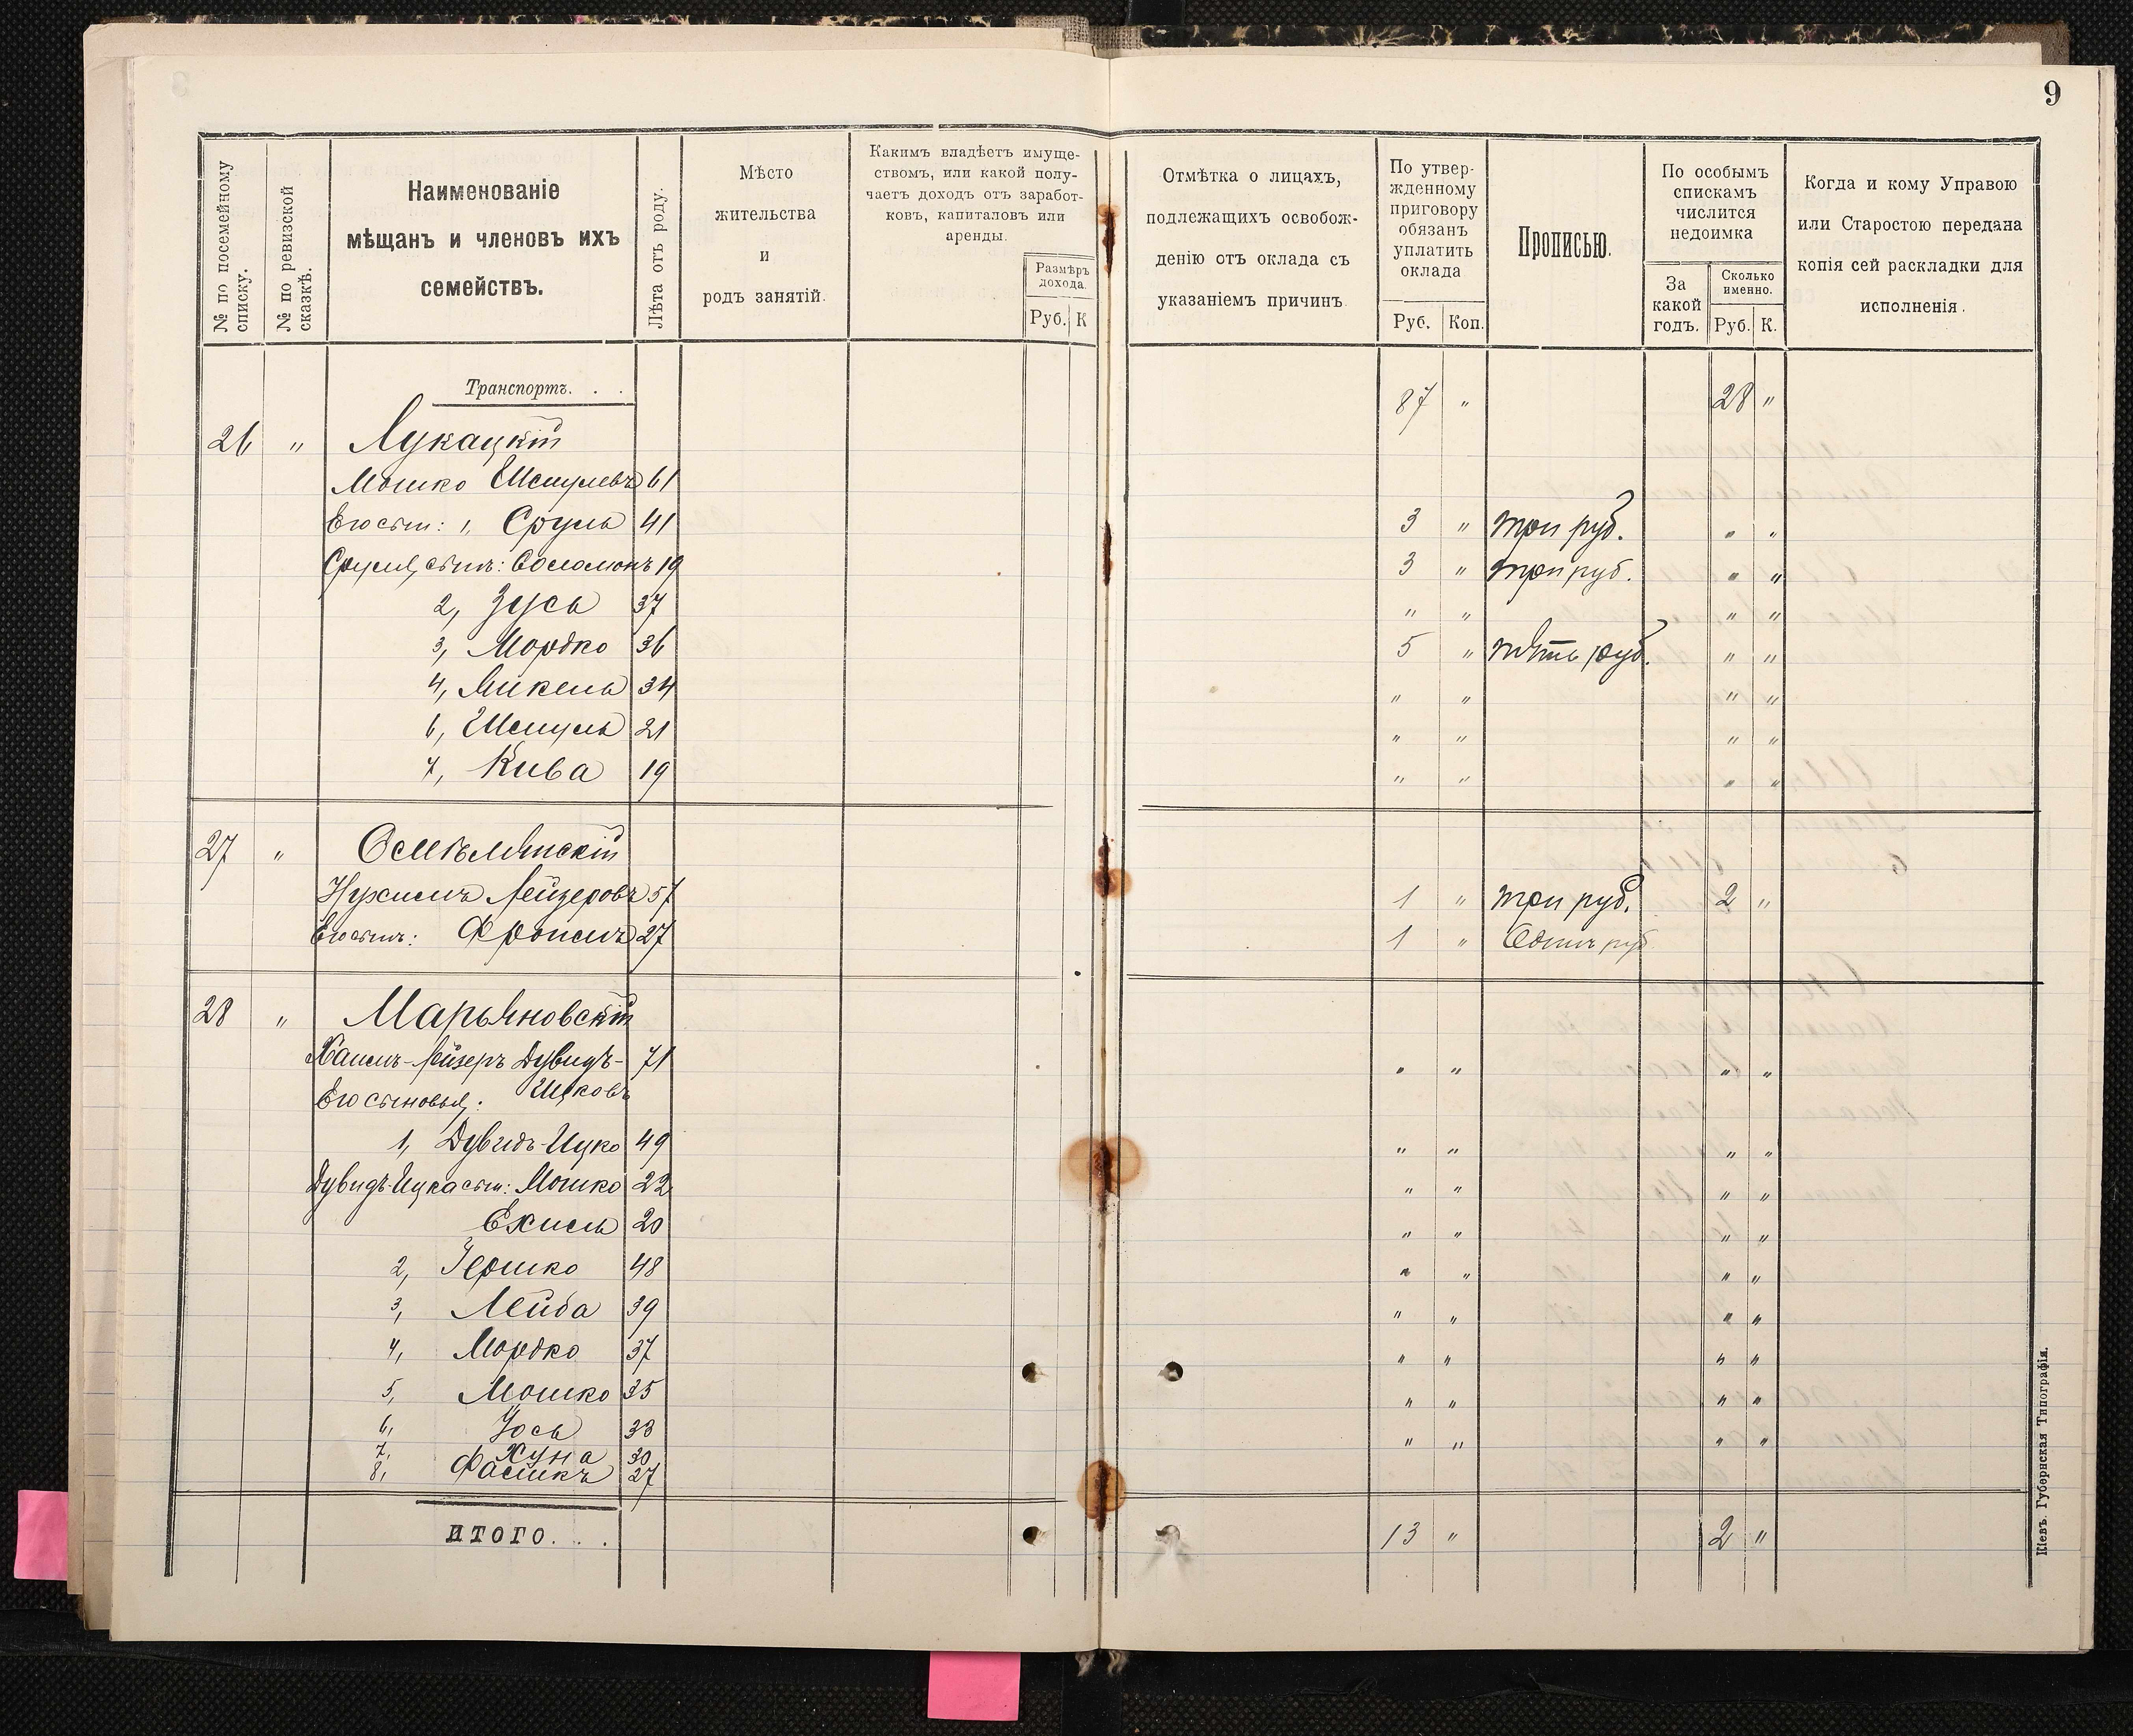 9
№ по посемейному списку.
№ по ревизской сказкѣ.
Наименованіе
мѣщанъ и членовъ ихъ
семействъ.
Лѣта отъ роду.
Мѣсто
жительства
и
родъ занятій.
Какимъ владѣетъ имуще-
ствомъ, или какой полу-
чаетъ доходъ отъ заработ-
ковъ, капиталовъ или
аренды.
Размѣръ
дохода.
Руб. К
Отмѣтка о лицахъ,
подлежащихъ освобож-
денію отъ оклада съ
указаніемъ причинъ.
По утвер-
жденному
приговору
обязанъ
уплатить
оклада
Руб. Коп.
Прописью.
По особымъ
спискамъ
числится
недоимка
За
какой
годъ.
Сколько
именно.
Руб. К.
Когда и кому Управою
или Старостою передана
копія сей раскладки для
исполненія.
Транспортъ. . . 87 " 28 "
26 " Лукацкій
Мошко Шмулевъ 61
Его сын: 1, Сруль 41 3 " три руб. " "
Сруля, сынъ: Соломонъ 19 3 " три руб. " "
2, Зусь 37 " " " "
3, Мордко 36 5 " пять руб. " "
4, Микель 34 " " " "
6, Шмуль 21 " " " "
7, Кива 19 " " " "
27 " Осмѣлянскій
Нухимъ Лейзеровъ 57 1 " три руб. 2 "
Его сынъ: Фроимъ 27 1 " Одинъ руб
28 " Марьяновскій
Хаимъ-Лейзеръ Дувидъ- 71 " " " "
Его сыновья: Ицковъ
1, Дувидъ-Ицко 49 " " " "
Дувидъ-Ицка сын: Мошко 22 " " " "
Ехиль 20 " " " "
2, Гершко 48 " " " "
3, Лейба 39 " " " "
4, Мордко 37 " " " "
5, Мошко 35 " " " "
6, Іось 33 " " " "
7, Хуна 30
8, 27
ИТОГО. . . 13 " 2 "
Кіевъ. Губернская Типографія.